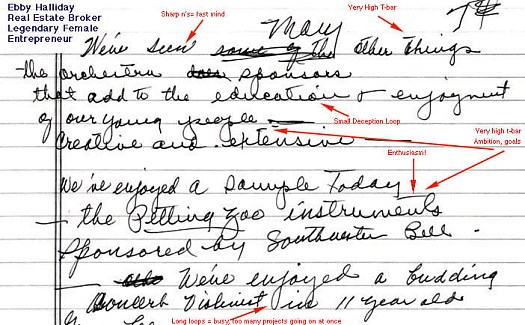 Ebby Halliday
Real Estate Broker
Legendary Female
Entrepreneur
Sharp n's= fast mind
Very High T-bar
7#
Many
We've seen some of the other things
the orchestra does sponsors
that add to the education + enjoyment
Small Deception Loop
of our young people
Very high t-bar
Ambition, goals
creative and extensive
Enthusiasm!
We've enjoyed a sample Today
the Petting Zoo instruments
sponsored by Southwestern Bell.
We've enjoyed a budding
Concert Violinist in 11 year old
Long loops = busy, too many projects going on at once